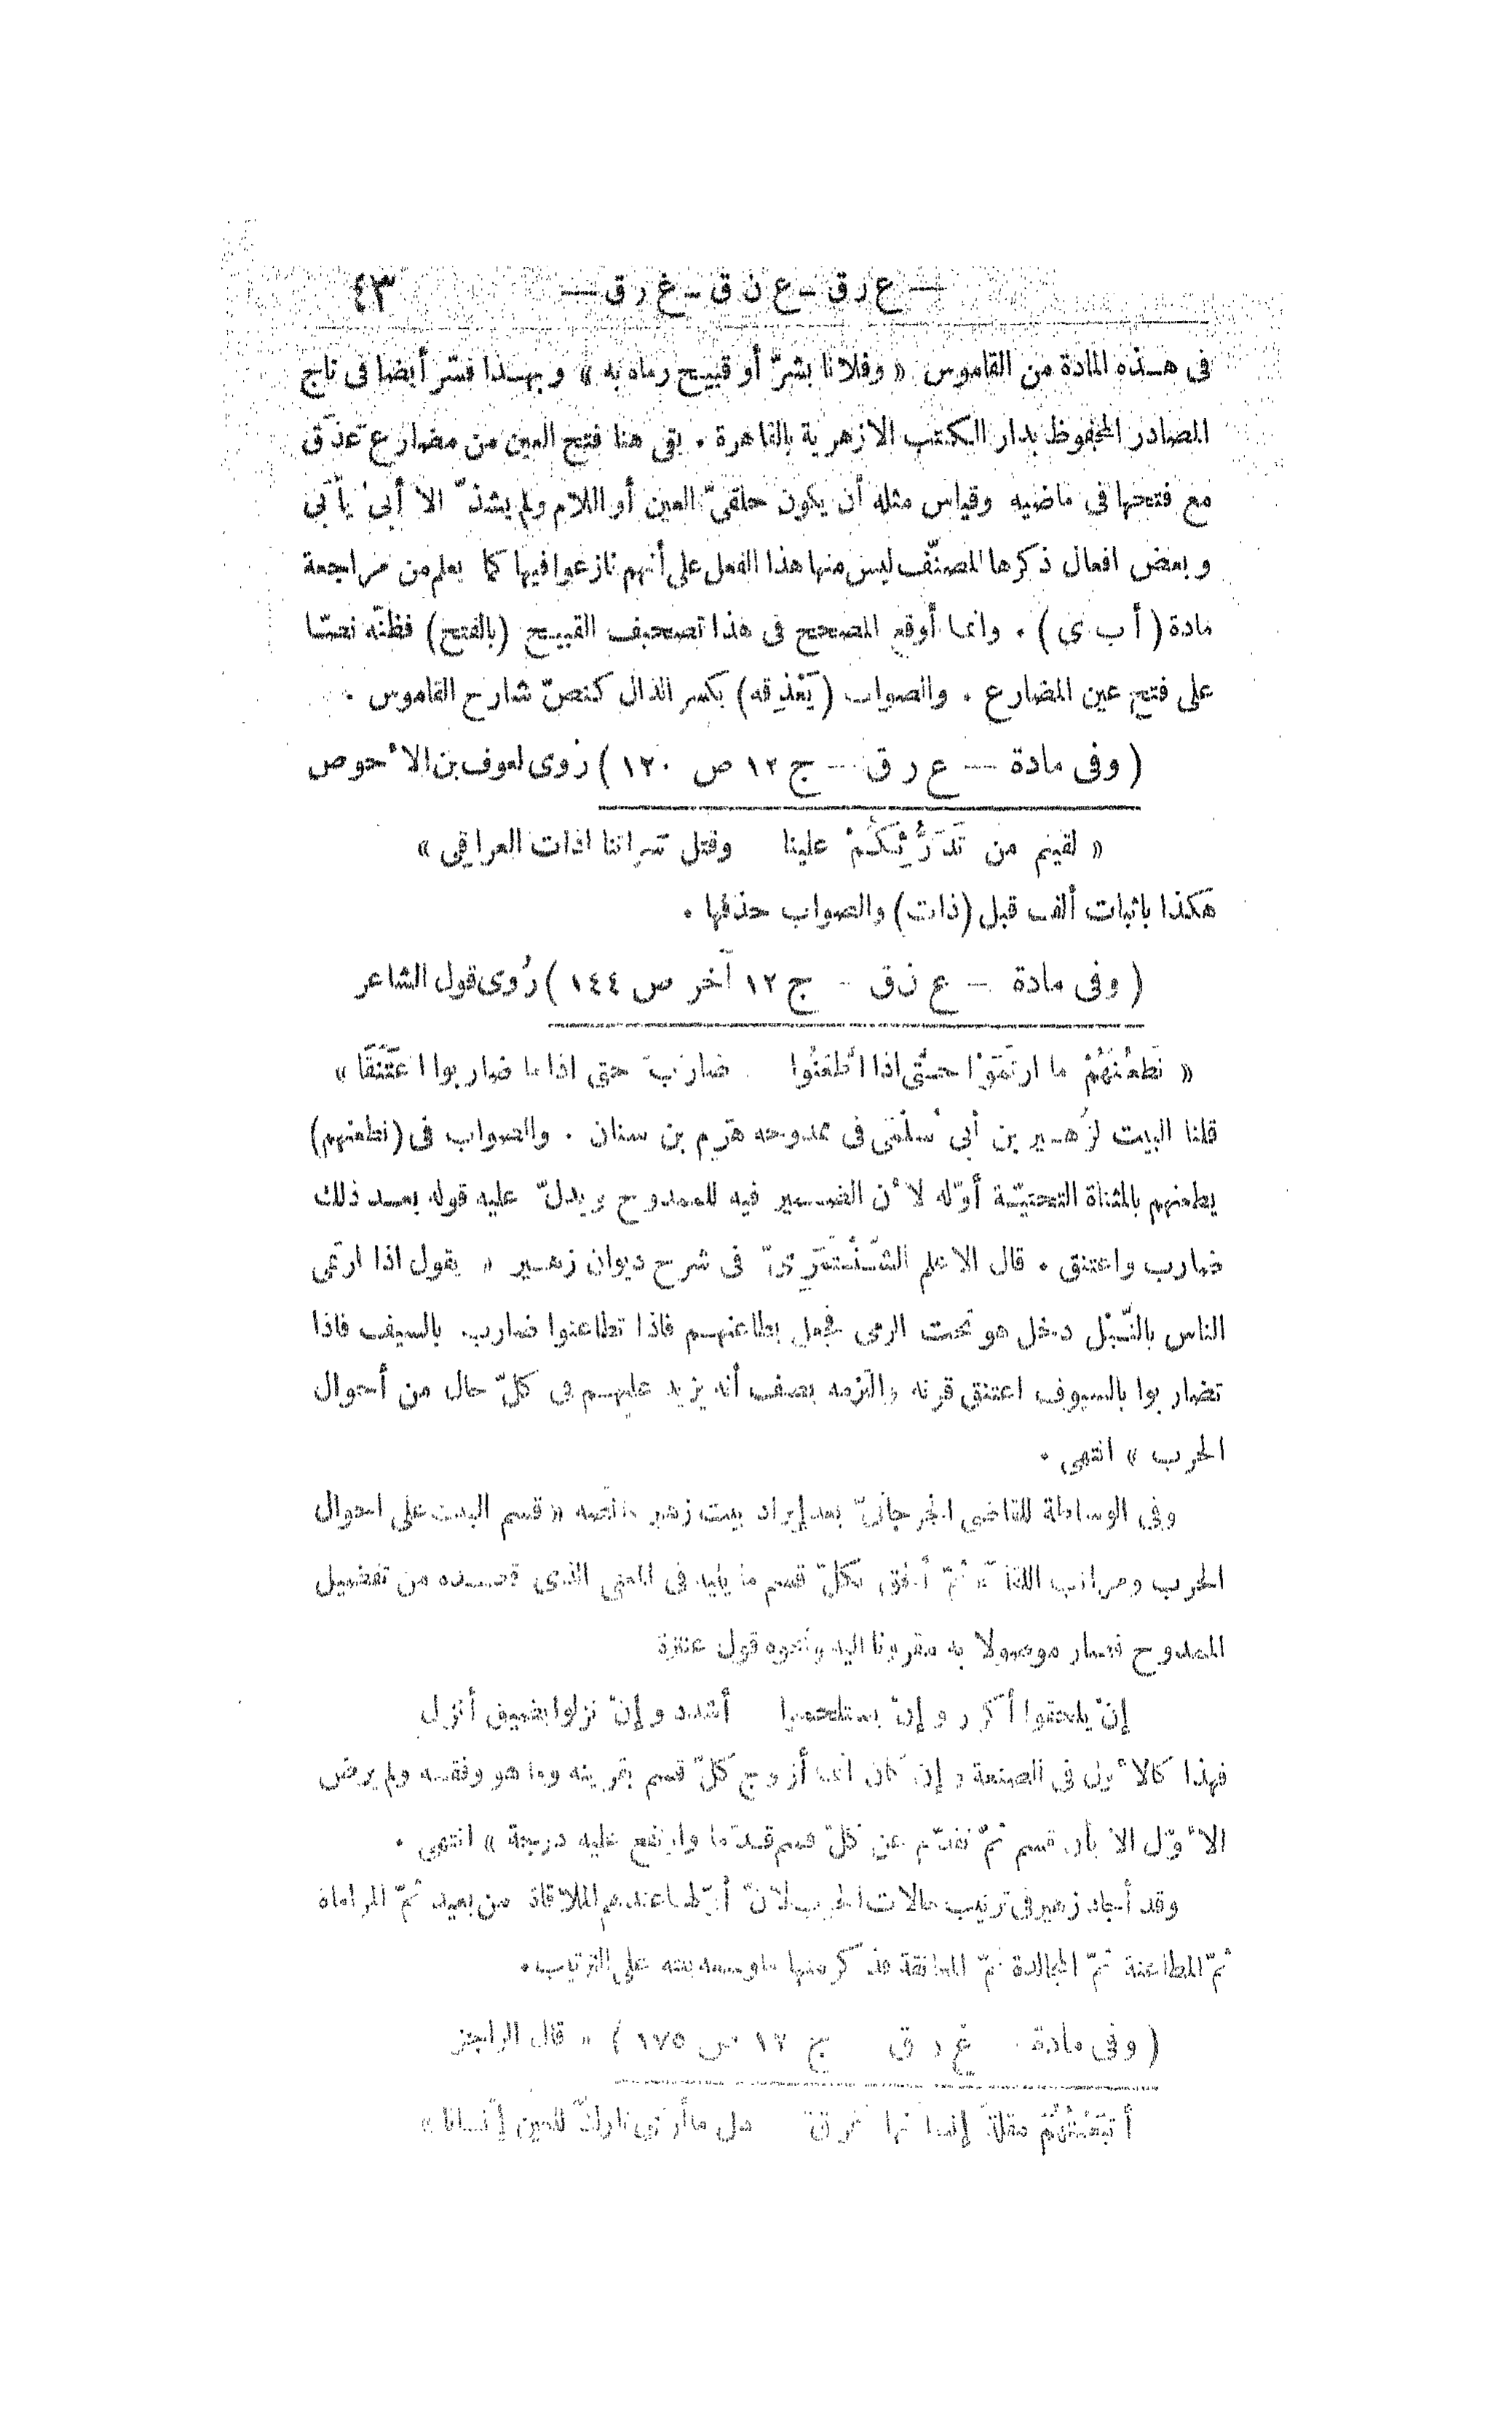 — ع ر ق - ع ن ق - غ ر ق — ٤٣
فى هـذه المادة من القاموس « وفلانا بشرّ أو قبيـح رماه به » وبهـذا فسّر أيضا فى تاج
المصادر المحفوظ بدار الكتب الازهرية بالقاهرة . بقى هنا فتح العين من مضارع عَذَق
مع فتحها فى ماضيه وقياس مثله أن يكون حلقىّ العين أو اللام ولم يشذّ الا أبى يأبى
وبعض افعال ذكرها المصنّف ليس منها هذا الفعل على أنهم نازعوا فيها كما يعلم من مراجعة
مادة ( أ ب ى ) . وانما أوقع المصحح فى هذا تصحيف القبيـح (بالفتح) فظنّه نصّـا
على فتح عين المضارع . والصواب (يَعْذِقه) بكسر الذال كنصّ شارح القاموس .
( وفى مادة — ع ر ق — ج ١٢ ص ١٢٠ ) رُوى لعوف بن الأحوص
« لقيتم من تَدَرُّئِكُمْ علينا وقتل سَراتنا اذات العراقى »
هكذا باثبات ألف قبل (ذات) والصواب حذفها .
( وفى مادة — ع ن ق - ج ١٢ آخر ص ١٤٤ ) رُوى قول الشاعر
« نَطعُنُهُمْ ما ارتَمَوْا حتّى اذا اطّعَنُوا ضاربَ حتى اذا ما ضاربوا اعتَنَقَا »
قلنا البيت لزُهـير بن أبى سُلْمَى فى ممدوحه هَرِم بن سنان . والصواب فى (نطعنهم)
يطعنهم بالمثناة التحتيّـة أوّله لأن الضـمير فيه للممدوح ويدلّ عليه قوله بعـد ذلك
ضارب واعتنق . قال الاعلم الشّـنْـتَمَرِىّ فى شرح ديوان زهـير « يقول اذا ارتمى
الناس بالنَّبْل دخل هو تحت الرمى فجعل يطاعنهـم فاذا تطاعنوا ضارب بالسيف فاذا
تضاربوا بالسيوف اعتنق قرنه والتزمه يصف أنه يزيد عليهـم فى كلّ حال من أحوال
الحرب » انتهى .
وفى الوساطة للقاضى الجرجانىّ بعد إيراد بيت زهير ما نصه « قسم البيت على احوال
الحرب ومراتب اللقاء ثمّ ألحق بكلّ قسم ما يليه فى المعنى الذى قصـده من تفضيل
الممدوح فصار موصولا به مقرونا اليه ونحوه قول عنترة
إنْ يلحقوا أكرر وإنْ يستلحموا أشدد وإنْ نزلوا بضيق أنزل
فهذا كالأول فى الصنعة وإن كان انما أزوج كلّ قسم بقرينه وما هو وفقـه ولم يرض
الأوّل الا بأن قسم ثمّ تقدّم عن كلّ قسم قدما وارتفع عليه درجة » انتهى .
وقد أجاد زهير فى ترتيب حالات الحرب لأنّ أوّلها عندهم الملاقاة من بعيد ثمّ المراماة
ثمّ المطاعنة ثمّ المجالدة ثمّ المعانقة فذكر منها ما وسعه بيته على الترتيب .
( وفى مادة غ ر ق ج ١٢ ص ١٧٥ ) « قال الراجز
أتبَعْتُهُمْ مقلةً إنسانها غرق هل ما أرى تاركٌ للعين إنسانا »